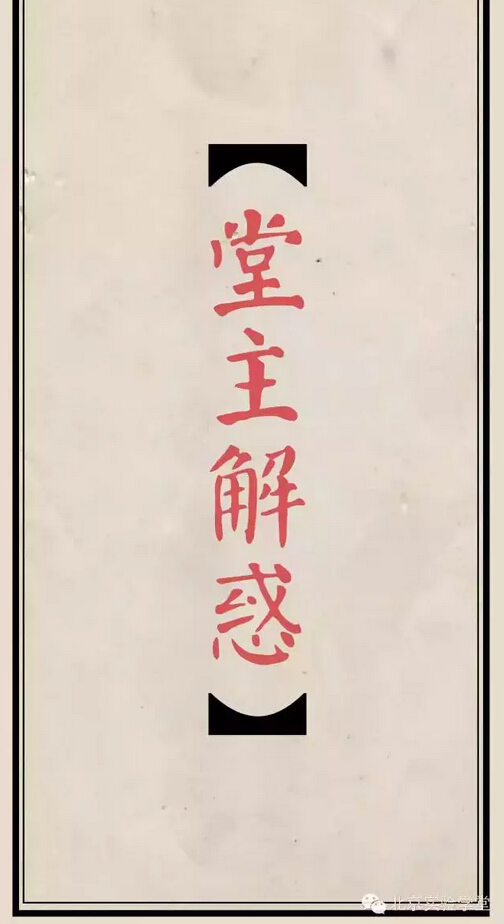 【堂主解惑】
北京实验学堂